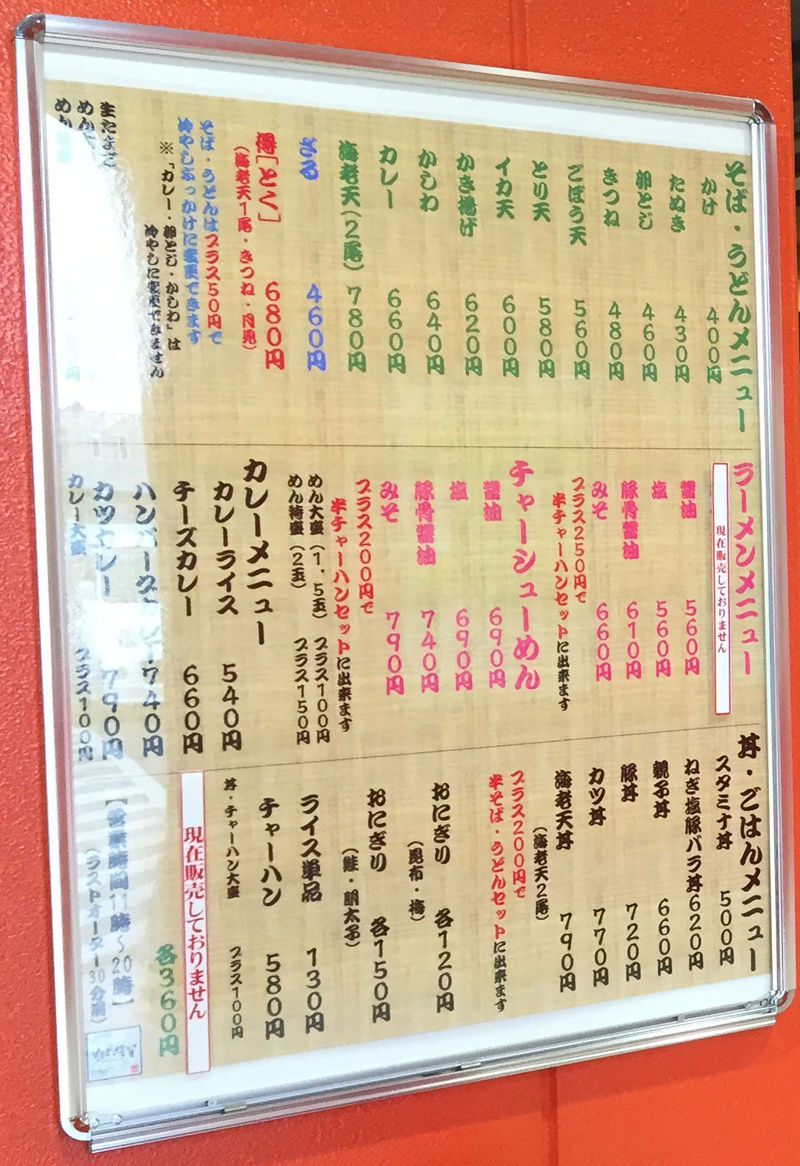 そば・うどんメニュー
かけ 400円
たぬき 430円
卵とじ 460円
きつね 480円
ごぼう天 560円
とり天 580円
イカ天 600円
かき揚げ 620円
かしわ 640円
カレー 660円
海老天(2尾) 780円
ざる 460円
得[とく] 680円
(海老天1尾・きつね・月見)
そば・うどんはプラス50円で
冷やしぶっかけに変更できます
※「カレー・卵とじ・かしわ」は
冷やしに変更できません
生たまご
めん
めん
ラーメンメニュー
現在販売しておりません
醤油 560円
塩 560円
豚骨醤油 610円
みそ 660円
プラス250円で
半チャーハンセットに出来ます
チャーシューめん
醤油 690円
塩 690円
豚骨醤油 740円
みそ 790円
プラス200円で
半チャーハンセットに出来ます
めん大盛(1,5玉) プラス100円
めん特盛(2玉) プラス150円
カレーメニュー
カレーライス 540円
チーズカレー 660円
ハンバーグカレー 740円
カツカレー 790円
カレー大盛 プラス100円
丼・ごはんメニュー
スタミナ丼 500円
ねぎ塩豚バラ丼 620円
親子丼 660円
豚丼 720円
カツ丼 770円
海老天丼 790円
(海老天2尾)
プラス200円で
半そば・うどんセットに出来ます
おにぎり 各120円
(昆布・梅)
おにぎり 各150円
(鮭・明太子)
ライス単品 130円
チャーハン 580円
丼・チャーハン大盛 プラス100円
現在販売しておりません
各360円
【営業時間11時~20時】
(ラストオーダー30分前)